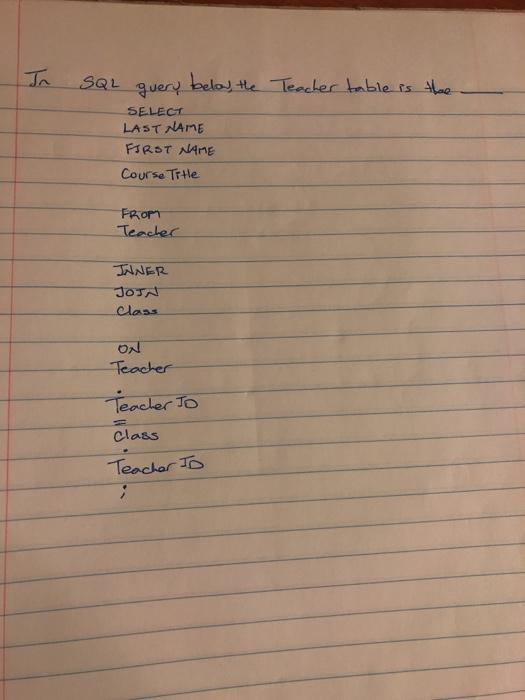 In SQL query below the Teacher table is the ____
SELECT
LAST NAME
FIRST NAME
Course Title
FROM
Teacher
INNER
JOIN
Class
ON
Teacher
.
Teacher ID
=
Class
.
Teacher ID
;